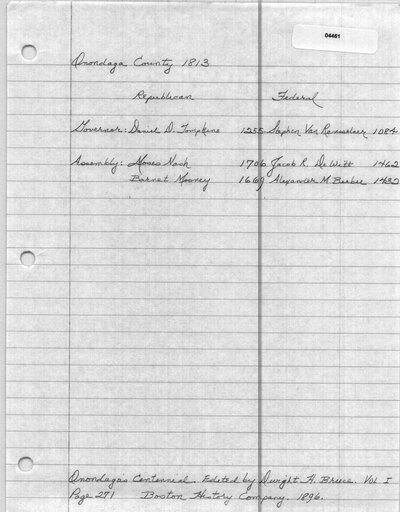 04461
Onondaga County 1813
Republican Federal
Governor: Daniel D. Tompkins 1255 Stephen Van Rensselaer 1084
Assembly: Moses Nash 1706 Jacob R. De Witt 1462
Barnet Mooney 1669 Alexander M. Beebee 1432
Onondaga's Centennial. Edited by Dwight H. Bruce. Vol I
Page 271 Boston History Company. 1896.